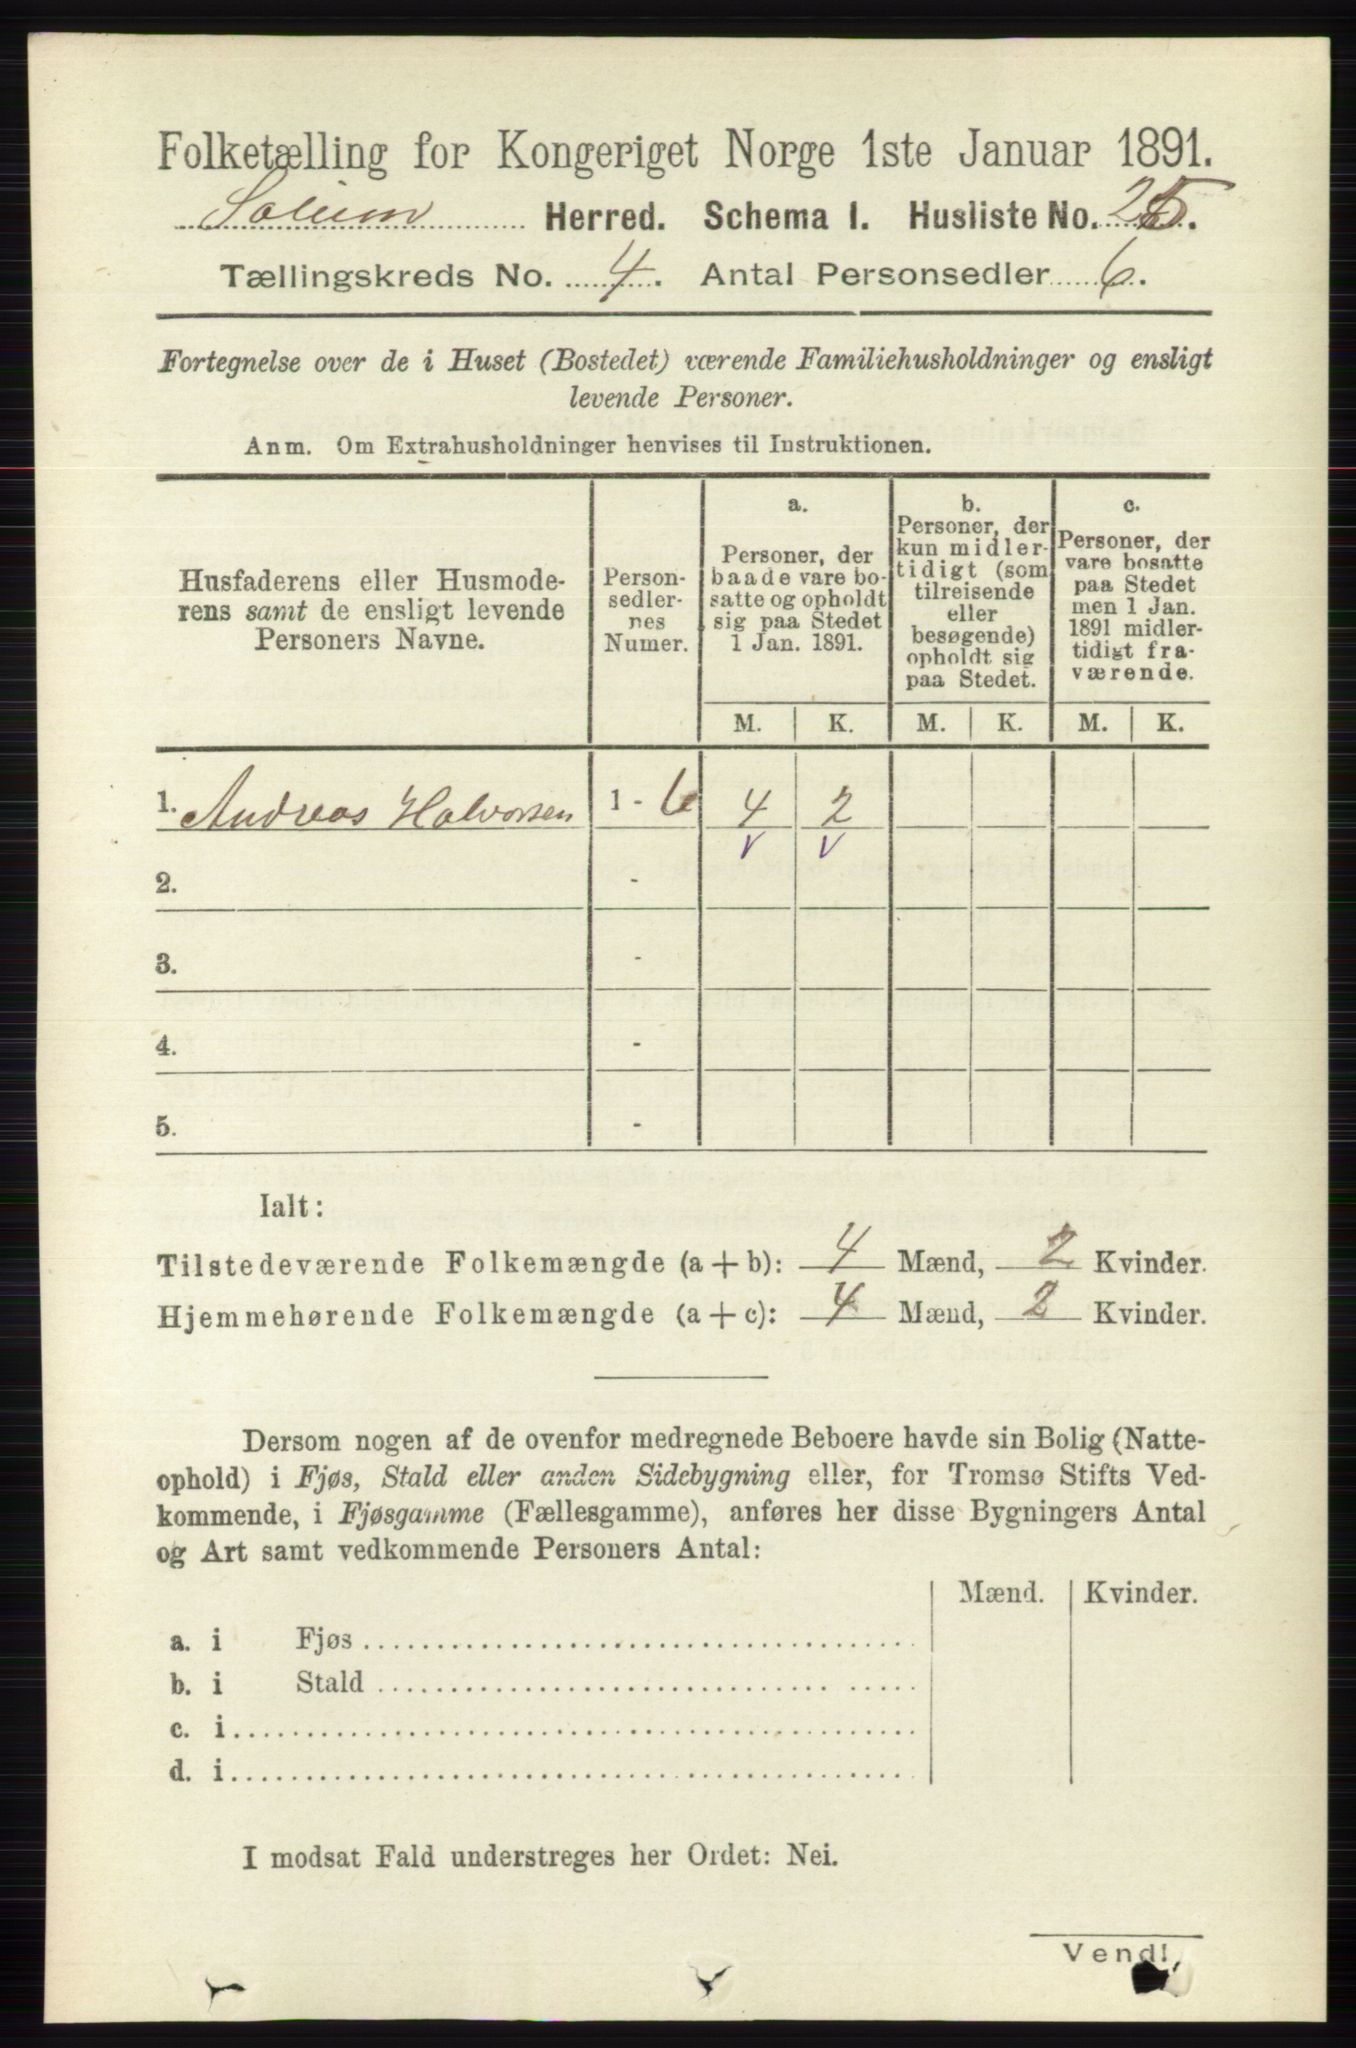 Folketælling for Kongeriget Norge 1ste Januar 1891.
Solum Herred. Schema I. Husliste No. 25.
Tællingskreds No. 4. Antal Personsedler 6.
Fortegnelse over de i Huset (Bostedet) værende Familiehusholdninger og ensligt
levende Personer.
Anm. Om Extrahusholdninger henvises til Instruktionen.
Husfaderens eller Husmode-
rens samt de ensligt levende
Personers Navne.
Person-
sedler-
nes
Numer.
a.
Personer, der
baade vare bo-
satte og opholdt
sig paa Stedet
1 Jan. 1891.
b.
Personer, der
kun midler-
tidigt (som
tilreisende
eller
besøgende)
opholdt sig
paa Stedet.
c.
Personer, der
vare bosatte
paa Stedet
men 1 Jan.
1891 midler-
tidigt fra-
værende.
M. K. M. K. M. K.
1. Andreas Halvorsen 1 - 6 4 2
v v
2. -
3. -
4. -
5. -
Ialt:
Tilstedeværende Folkemængde (a + b): 4 Mænd, 2 Kvinder.
Hjemmehørende Folkemængde (a + c): 4 Mænd, 2 Kvinder.
Dersom nogen af de ovenfor medregnede Beboere havde sin Bolig (Natte-
ophold) i Fjøs, Stald eller anden Sidebygning eller, for Tromsø Stifts Ved-
kommende, i Fjøsgamme (Fællesgamme), anføres her disse Bygningers Antal
og Art samt vedkommende Personers Antal:
Mænd. Kvinder.
a. i Fjøs
b. i Stald
c. i
d. i
I modsat Fald understreges her Ordet: Nei.
Vend!